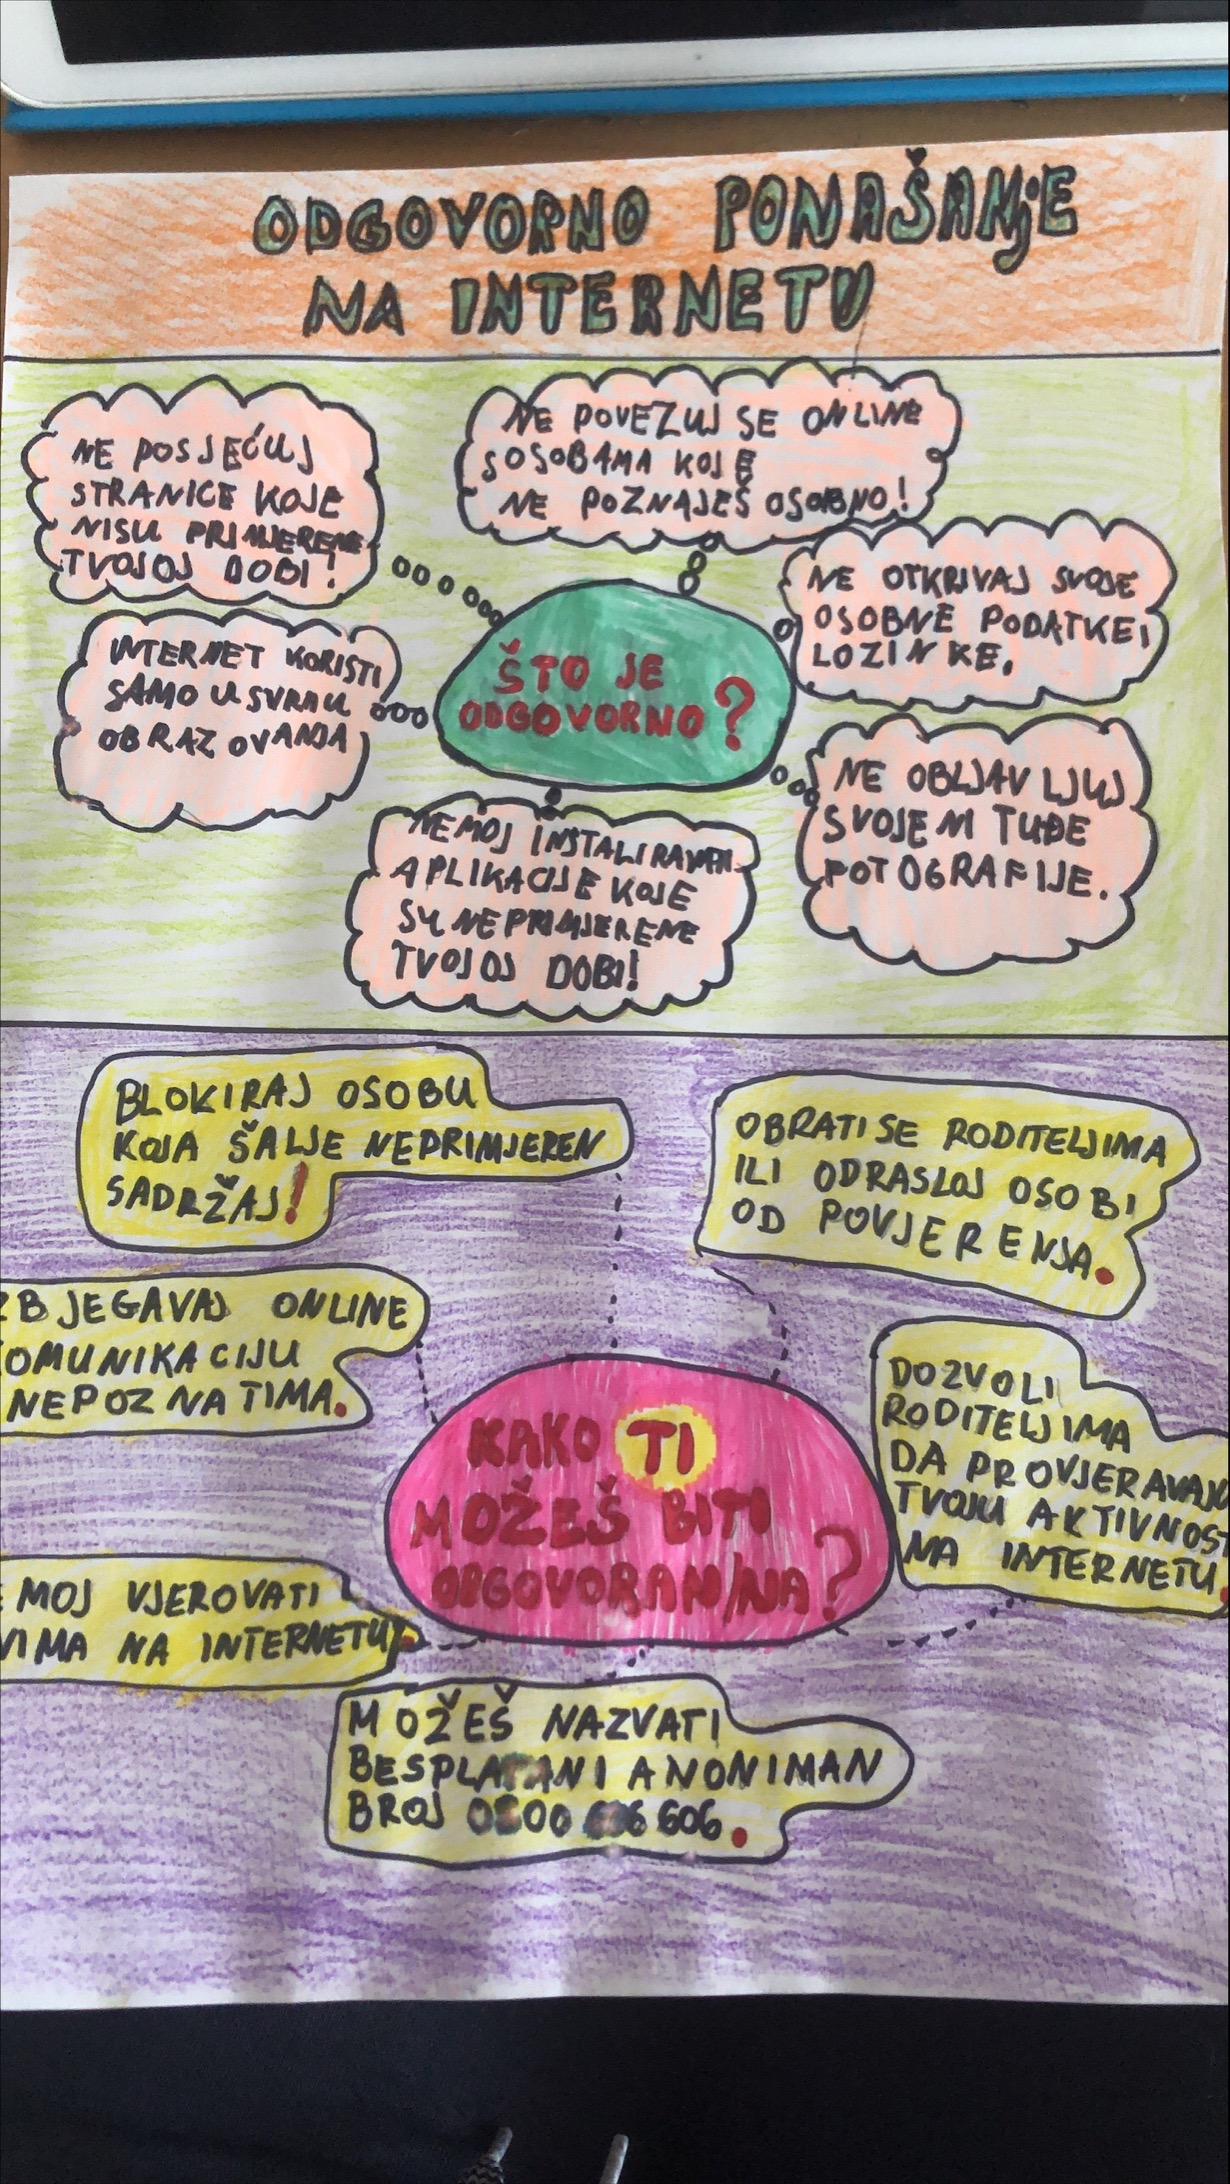 ODGOVORNO PONAŠANjE
NA INTERNETU
NE POSJEĆUJ
STRANICE KOJE
NISU PRIMJERENE
TVOJOJ DOBI!
NE POVEZUJ SE ONLINE
S OSOBAMA KOJE
NE POZNAJEŠ OSOBNO!
NE OTKRIVAJ SVOJE
OSOBNE PODATKE I
LOZINKE.
INTERNET KORISTI
SAMO U SVRHU
OBRAZOVANJA
ŠTO JE
ODGOVORNO?
NE OBLJAVLJUJ
SVOJE NI TUĐE
FOTOGRAFIJE.
NEMOJ INSTALIRAVATI
APLIKACIJE KOJE
SU NEPRIMJERENE
TVOJOJ DOBI!
BLOKIRAJ OSOBU
KOJA ŠALJE NEPRIMJEREN
SADRŽAJ!
OBRATI SE RODITELJIMA
ILI ODRASLOJ OSOBI
OD POVJERENJA.
ZBJEGAVAJ ONLINE
OMUNIKACIJU
NEPOZNATIMA.
DOZVOLI
RODITELJIMA
DA PROVJERAVAJU
TVOJU AKTIVNOS
NA INTERNETU.
KAKO TI
MOŽEŠ BITI
ODGOVORAN/NA?
MOJ VJEROVATI
VIMA NA INTERNETU.
MOŽEŠ NAZVATI
BESPLATAN I ANONIMAN
BROJ 0800 606 606.